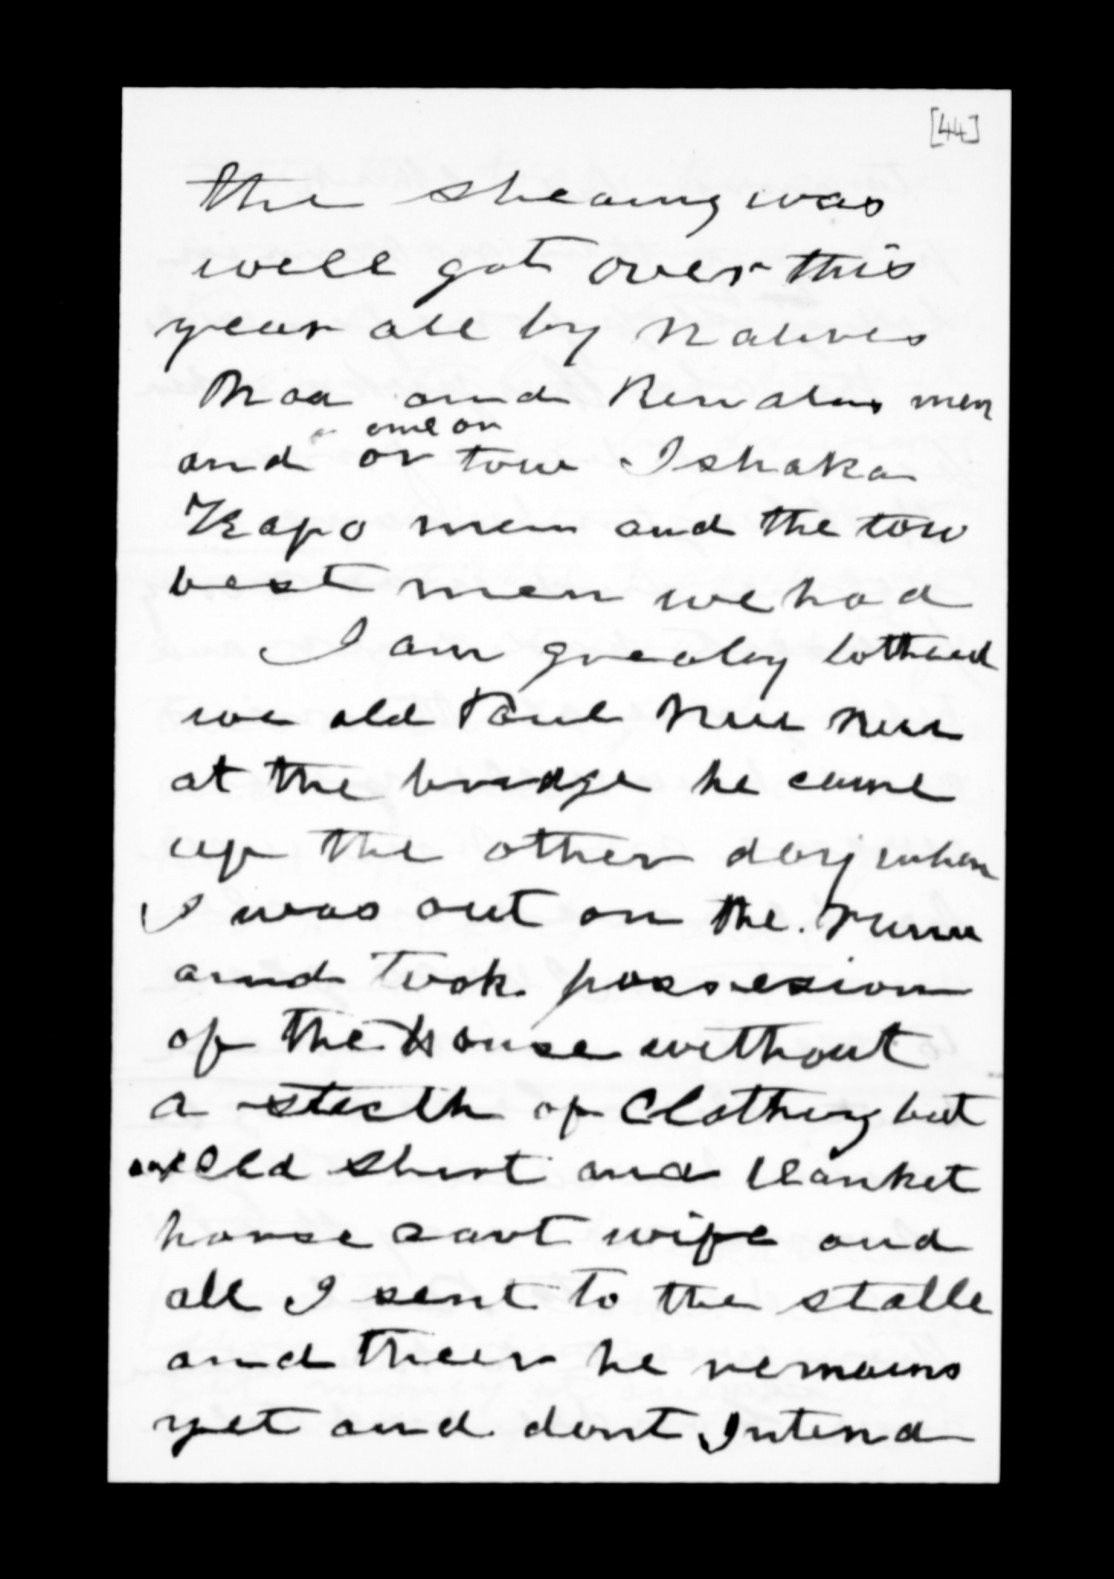 [44]
the shearing was
well got over this
year all by Natives
Moa and Renatas men
and one or
or tow Ishaka
Kapo men and the tow
best men we had
I am grealey botherd
we old Paul
at the bridge he came
up the other day when
I was out on the runn
and took possesion
of the house without
a of Clothing but
old shirt and blanket
horse cart wife and
all I sent to the stalle
and theer he remains
yet and dont Intend